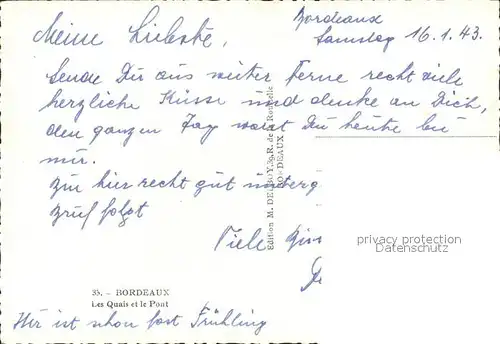 Bordeaux
Samstag 16.1.43.
Meine Liebste,
Sende Dir aus weiter Ferne recht viele
herzliche Küsse und denke an Dich,
den ganzen Tag warst Du heute bei
mir.
hier recht gut
folgt
Viele
Edition M. DELBOY, 39, R. de La Rochelle
BORDEAUX
privacy protection
Datenschutz
35. - BORDEAUX
Les Quais et le Pont
Hier ist schon fast Frühling